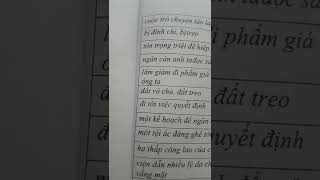 cuộc trò chuyện tào la
bị đình chỉ, bịtreo
tôn trọng triệt để hiệp
ngăn cản anh tađọc sá
làm giảm đi phẩm giá
ông ta
đất vô chủ, đất treo
đi tới việc quyết định
một kế hoạch để ngăn
một tội ác đáng ghê tởm
hạ thấp công lao của c
viện dẫn nhiều lý do ch
vắng mặt